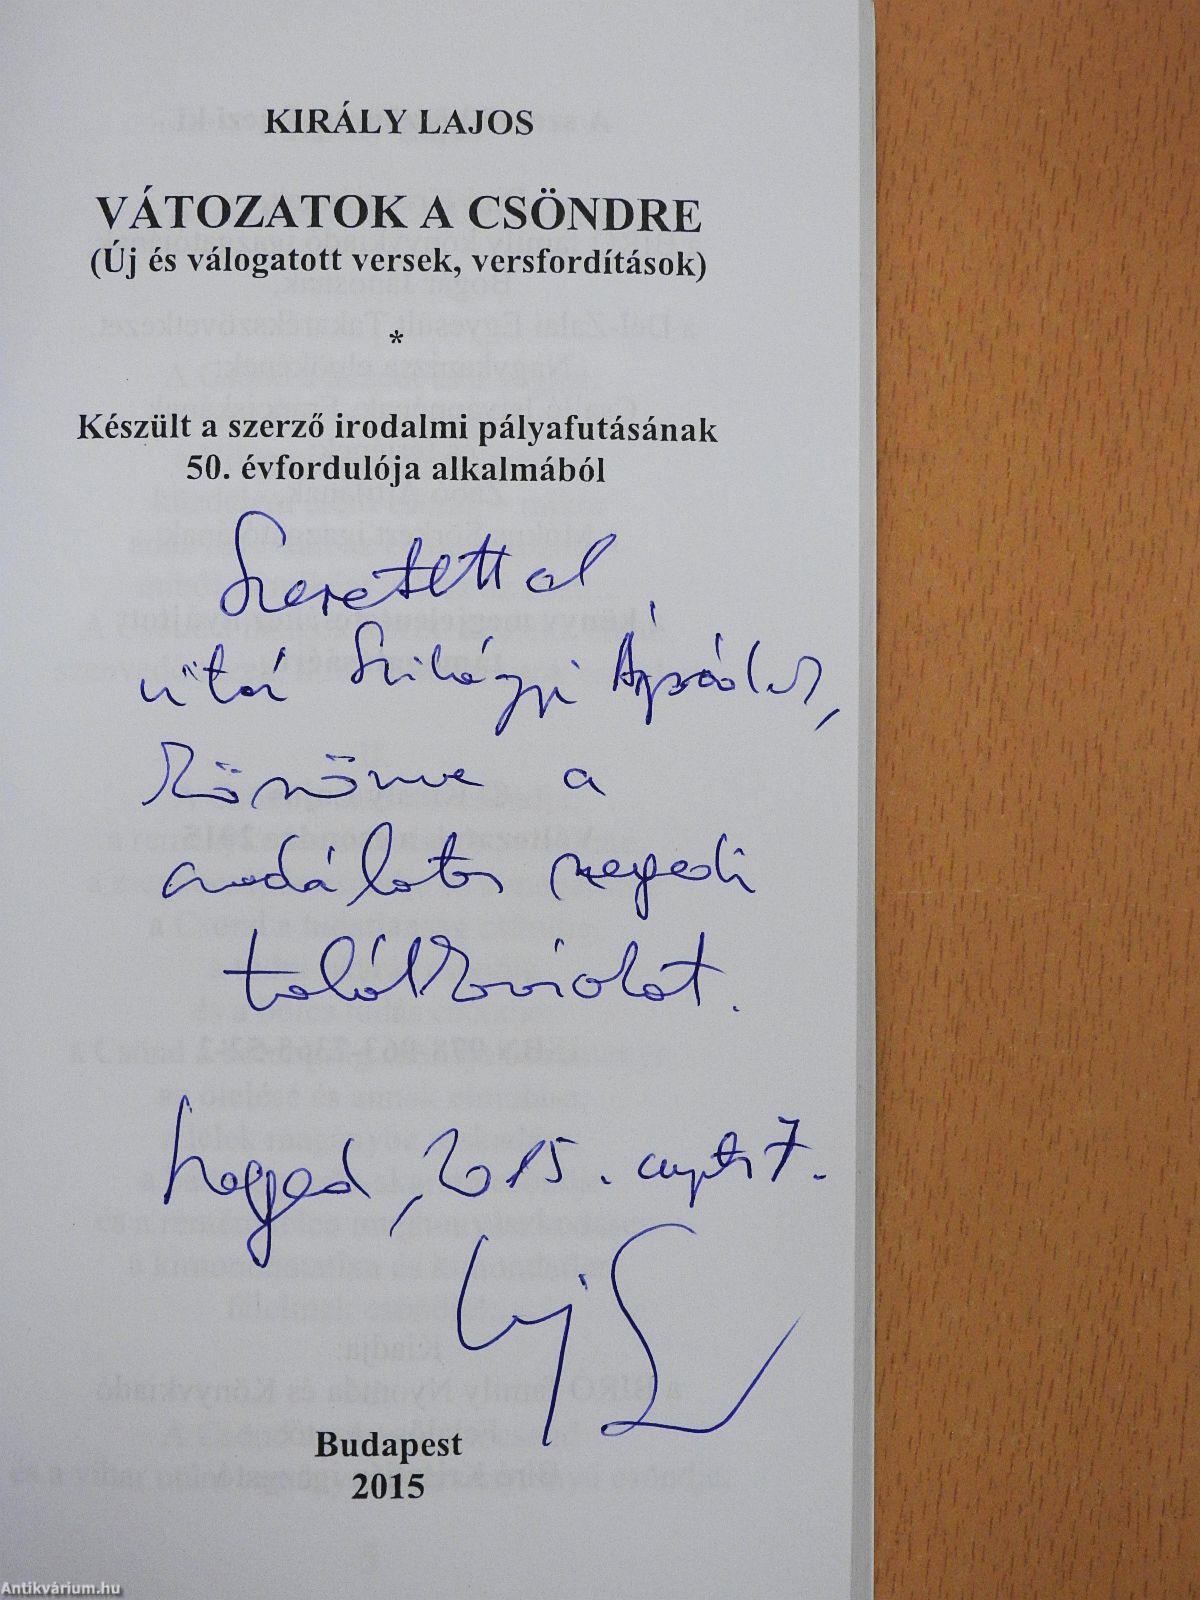 KIRÁLY LAJOS
VÁTOZATOK A CSÖNDRE
(Új és válogatott versek, versfordítások)
*
Készült a szerző irodalmi pályafutásának
50. évfordulója alkalmából
Szeretettel
Szilágyi Árpádnak,
köszönve a
csodálatos szegedi
találkozásokat.
Szeged, 2015. 7.
Budapest
2015
Antikvárium.hu